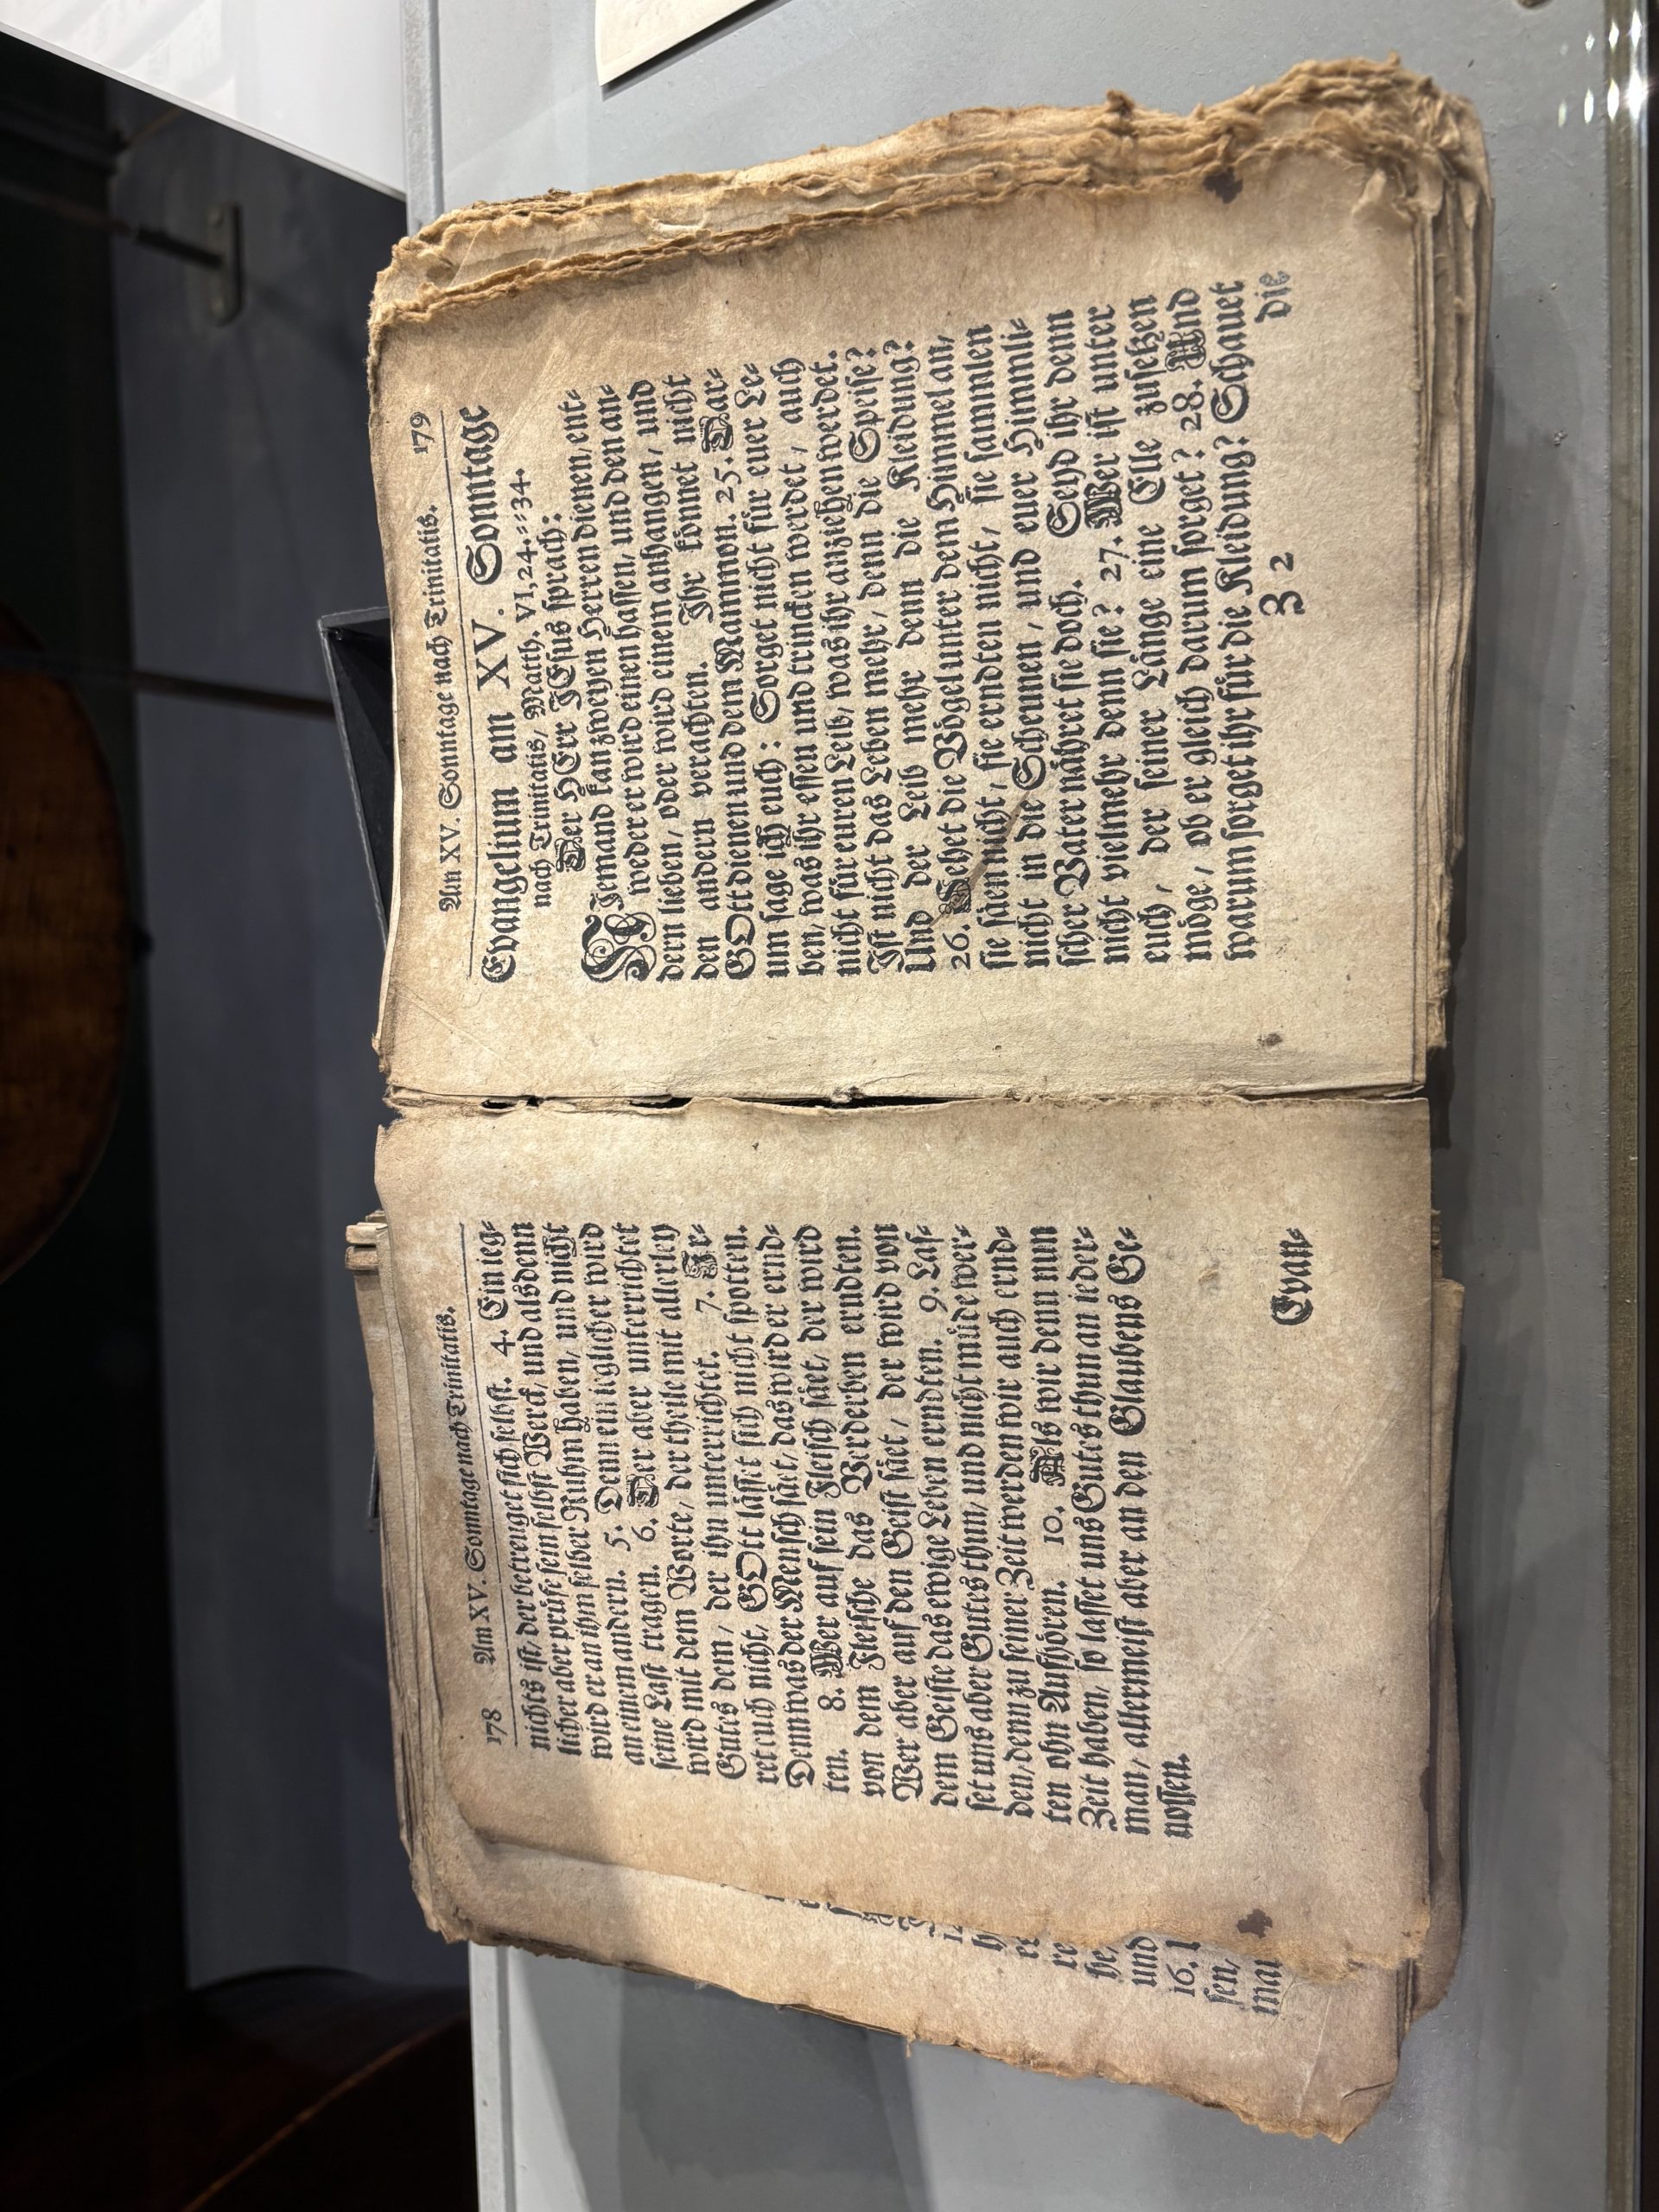 178 Am XV. Sonntage nach Trinitatis.
nichts ist, der betreuget sich selbst. 4. Ein ieg⸗
licher aber prüfe sein selbst Werck, und alsdenn
wird er an ihm selber Ruhm haben, und nicht
an einem andern. 5. Denn ein ieglicher wird
seine Last tragen. 6. Der aber unterrichtet
wird mit dem Worte, der theile mit allerley
Gutes dem, der ihn unterrichtet. 7. Ir⸗
ret euch nicht, GOtt lässet sich nicht spotten.
Denn was der Mensch säet, das wird er ernd⸗
ten. 8. Wer auf sein Fleisch säet, der wird
von dem Fleische das Verderben erndten.
Wer aber auf den Geist säet, der wird von
dem Geiste das ewige Leben erndten. 9. Las⸗
set uns aber Gutes thun, und nicht müde wer⸗
den, denn zu seiner Zeit werden wir auch ernd⸗
ten ohn Aufhören. 10. Als wir denn nun
Zeit haben, so lasset uns Gutes thun an ieder⸗
man, allermeist aber an den Glaubens Ge⸗
nossen.
Evan⸗
Am XV. Sonntage nach Trinitatis. 179
Evangelium am XV. Sonntage
nach Trinitatis, Matth. VI, 24.⸗⸗34.
Der HErr JEsus sprach:
Niemand kan zweyen Herren dienen, ent⸗
weder er wird einen hassen, und den an⸗
dern lieben, oder wird einem anhangen, und
den andern verachten. Ihr könnet nicht
GOtt dienen und dem Mammon. 25. Dar⸗
um sage ich euch: Sorget nicht für euer Le⸗
ben, was ihr essen und trincken werdet, auch
nicht für euren Leib, was ihr anziehen werdet.
Ist nicht das Leben mehr, denn die Speise?
Und der Leib mehr denn die Kleidung?
26. Sehet die Vögel unter dem Himmel an,
sie säen nicht, sie erndten nicht, sie sammlen
nicht in die Scheunen, und euer Himmli⸗
scher Vater nähret sie doch. Seyd ihr denn
nicht vielmehr denn sie? 27. Wer ist unter
euch, der seiner Länge eine Elle zusetzen
möge, ob er gleich darum sorget? 28. Und
warum sorget ihr für die Kleidung? Schauet
Z 2 die
und
16. I
sen,